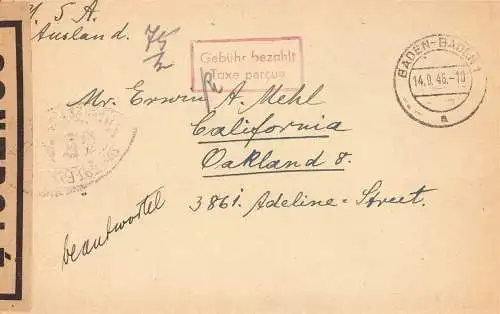 S. A.
Ausland.
75
Gebühr bezahlt
Taxe perçue
BADEN-BADEN 1
14.9.46.-10
a
Mr. Erwin A. Mehl
California
Oakland 8.
3861. Adeline-Street.
beantwortet